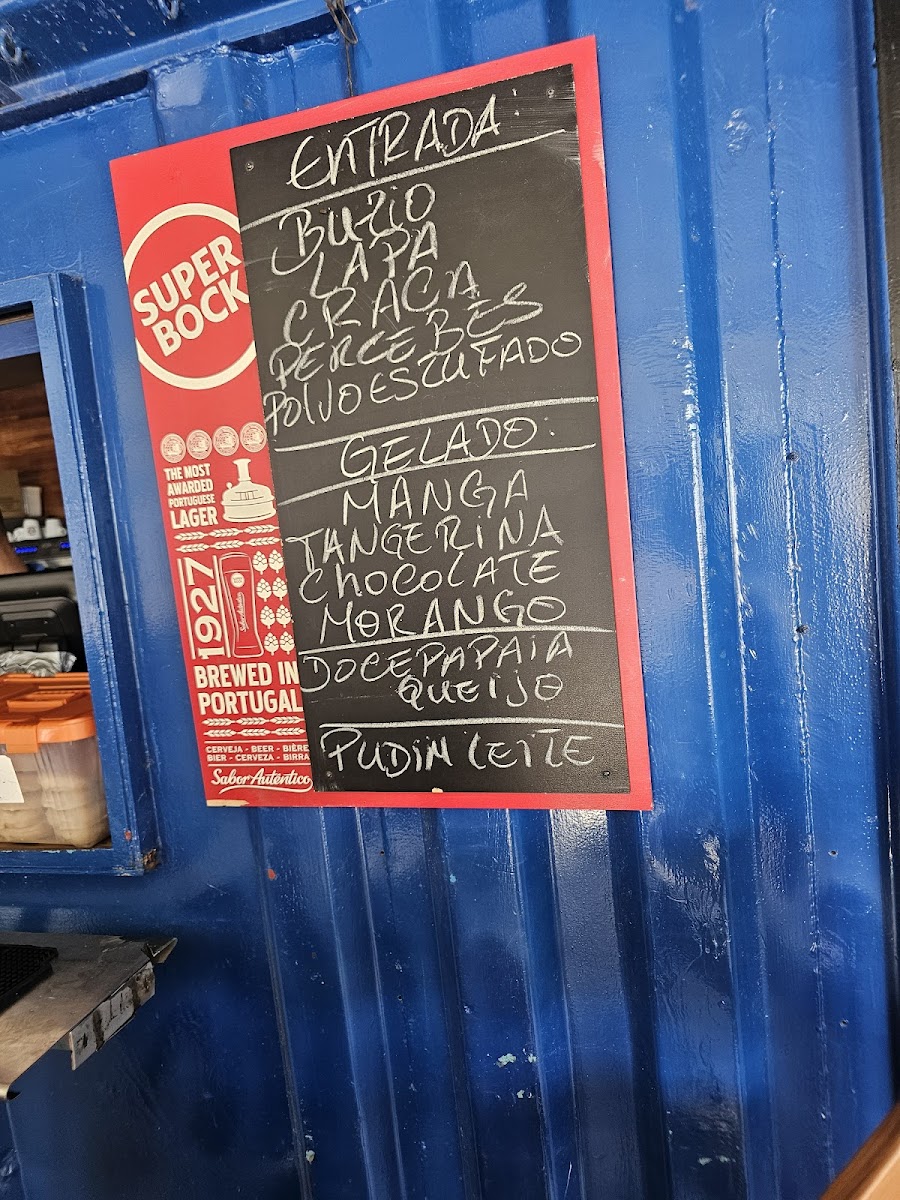 ENTRADA
BUZIO
LAPA
CRACA
PERCEBES
POLVO ESTUFADO
GELADO:
MANGA
TANGERINA
CHOCOLATE
MORANGO
DOCE PAPAIA
QUEIJO
PUDIM LEITE
SUPER
BOCK
THE MOST
AWARDED
PORTUGUESE
LAGER
1927
BREWED IN
PORTUGAL
CERVEJA - BEER - BIÈRE
BIER - CERVEZA - BIRRA
Sabor Autêntico